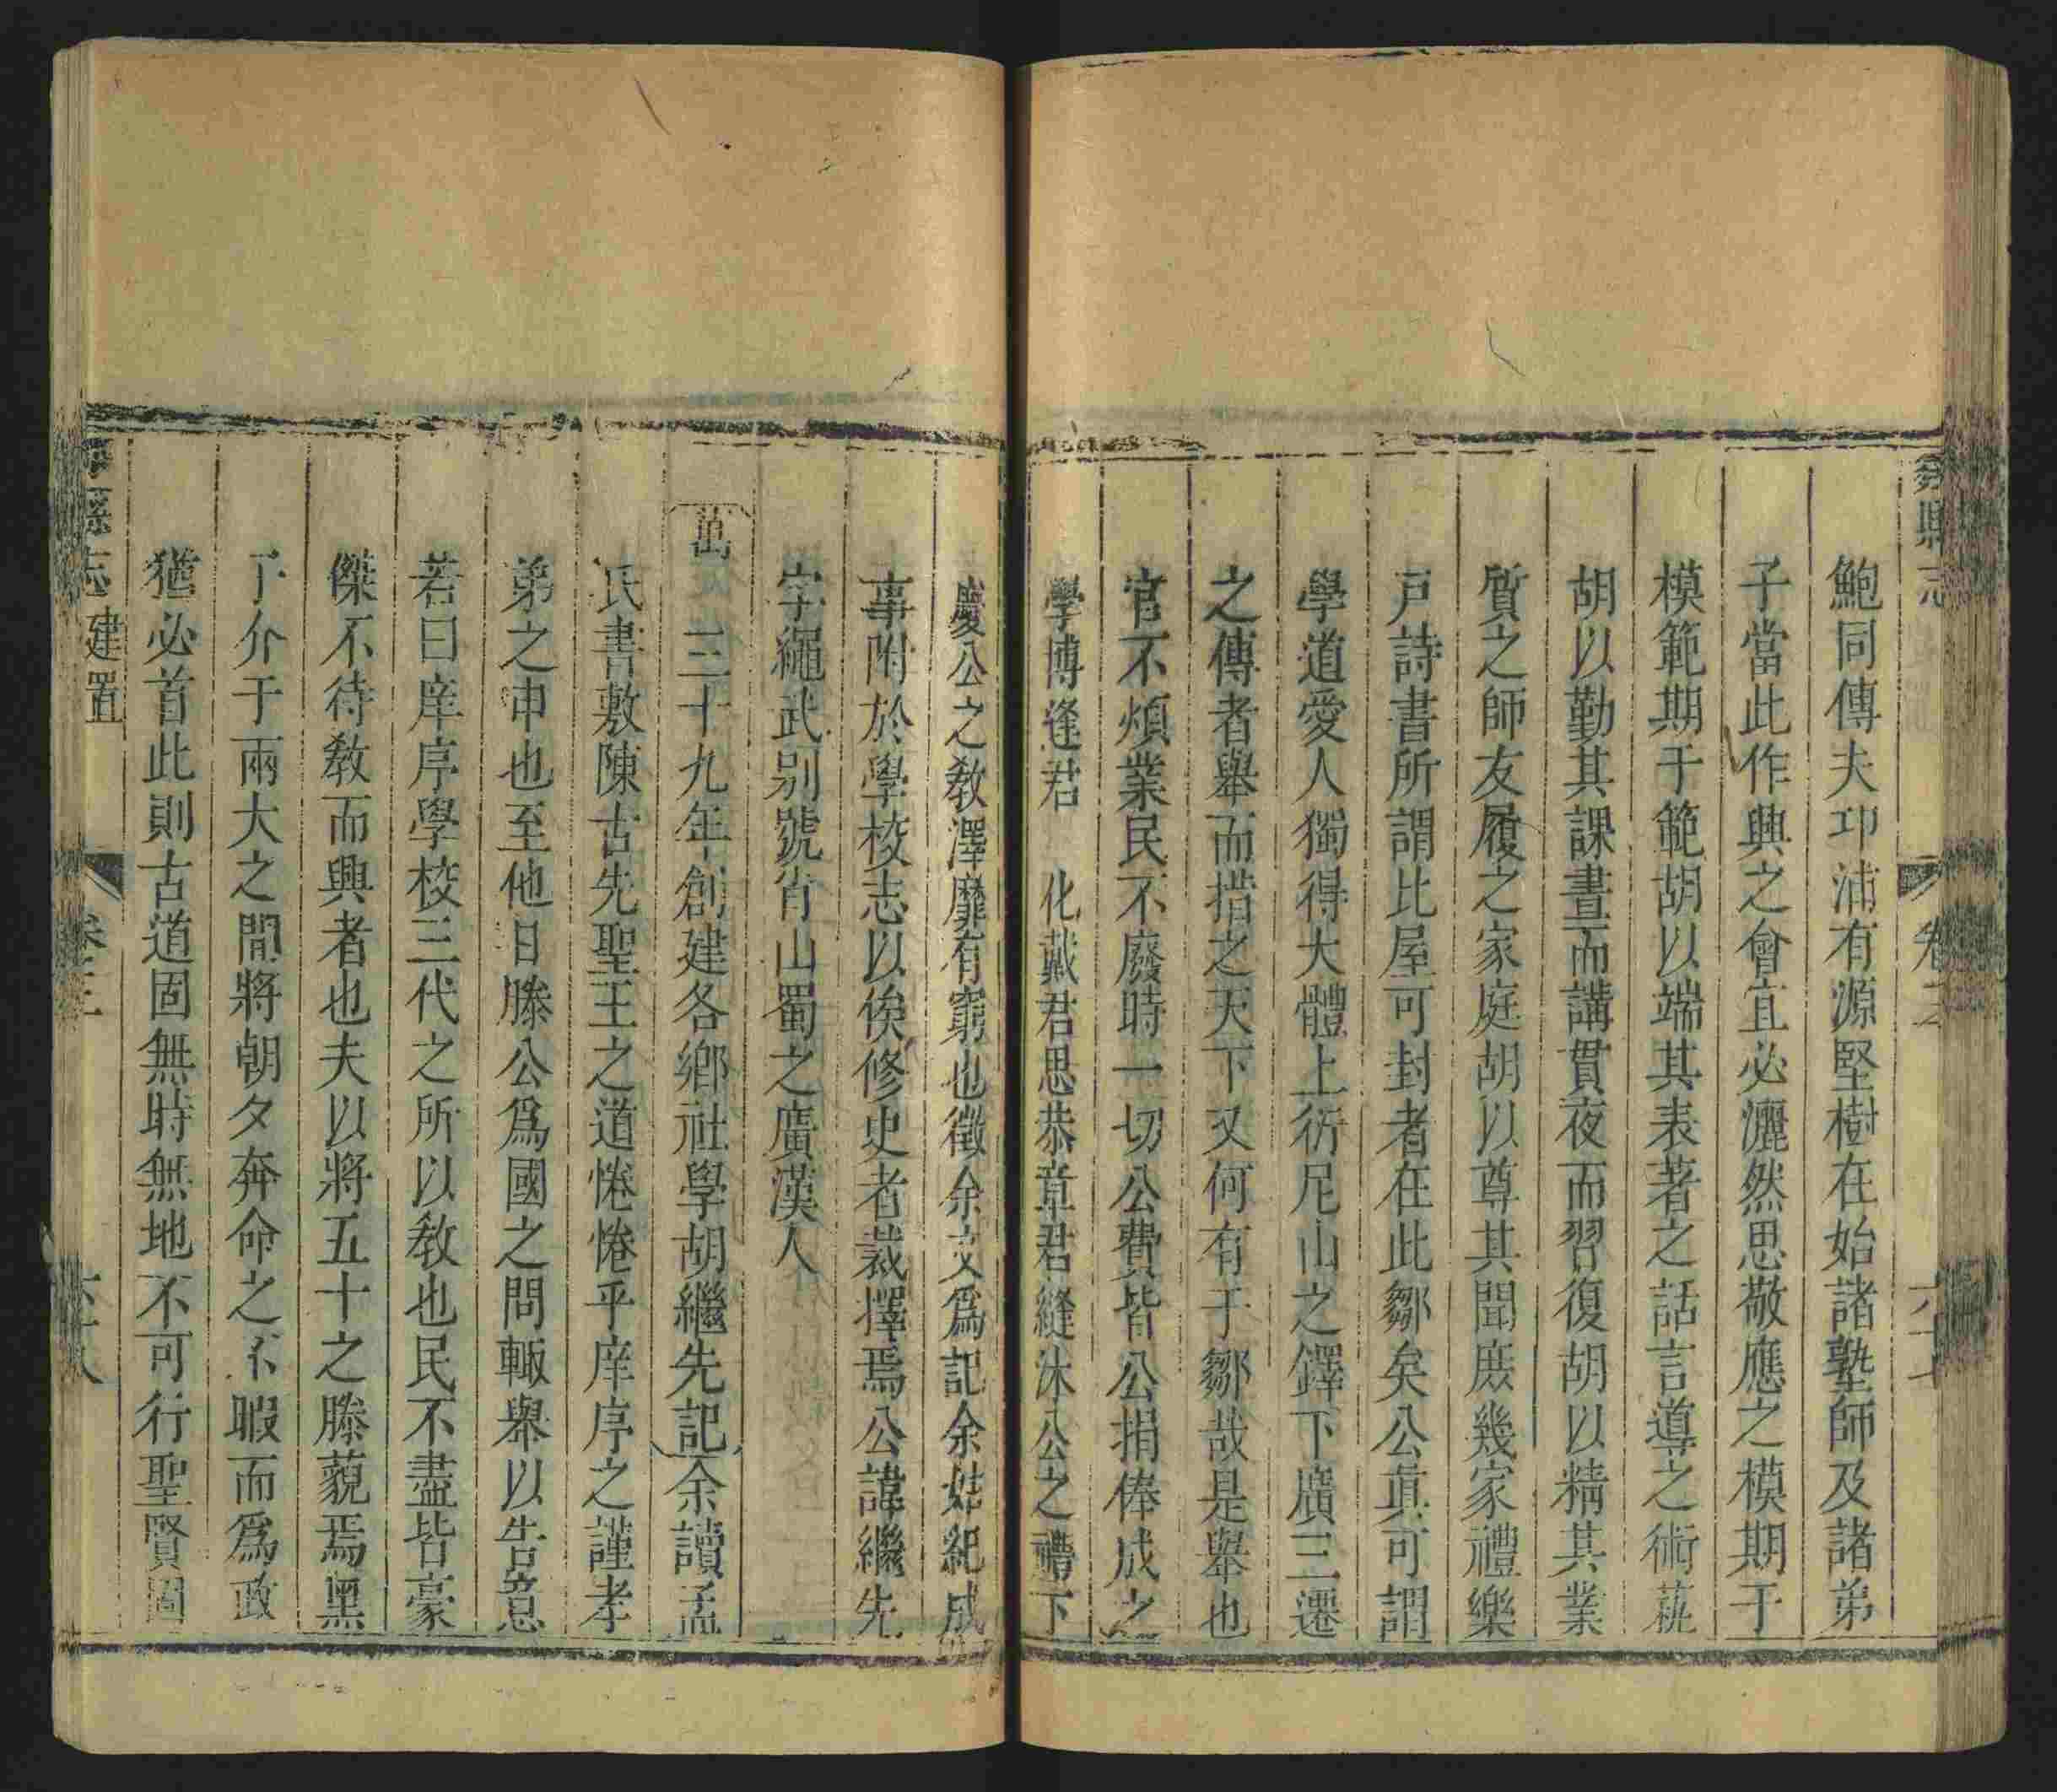 鄒縣志
卷之
六十七
鮑同傳夫邛浦有源堅樹在始諸塾師及諸弟
子當此作興之會宜必灑然思敬應之模期于
模範期于範胡以端其表著之話言導之術蓺
胡以勤其課晝而講貫夜而習復胡以精其業
質之師友履之家庭胡以尊其聞庶幾家禮樂
戸詩書所謂比屋可封者在此鄒矣公眞可謂
學道愛人獨得大體上衍尼山之鐸下廣三遷
之傳者舉而措之天下又何有于鄒哉是舉也
官不煩業民不廢時一切公費皆公捐俸成之
學博逢君　化戴君思恭章君縫沐公之禮下
慶公之教澤靡有窮也徵余文爲記余姑紀成
事附於學校志以俟修史者裁擇焉公諱繼先
字繩武别號肖山蜀之廣漢人
萬　三十九年創建各鄉社學胡繼先記余讀孟
氏書敷陳古先聖王之道惓惓乎庠序之謹孝
弟之申也至他日滕公爲國之問輙舉以告意
若曰庠序學校三代之所以教也民不盡皆豪
傑不待教而興者也夫以將五十之滕藐焉黑
子介于兩大之間將朝夕奔命之不暇而爲政
猶必首此則古道固無時無地不可行聖賢固
鄒縣志建置
卷三
六十八